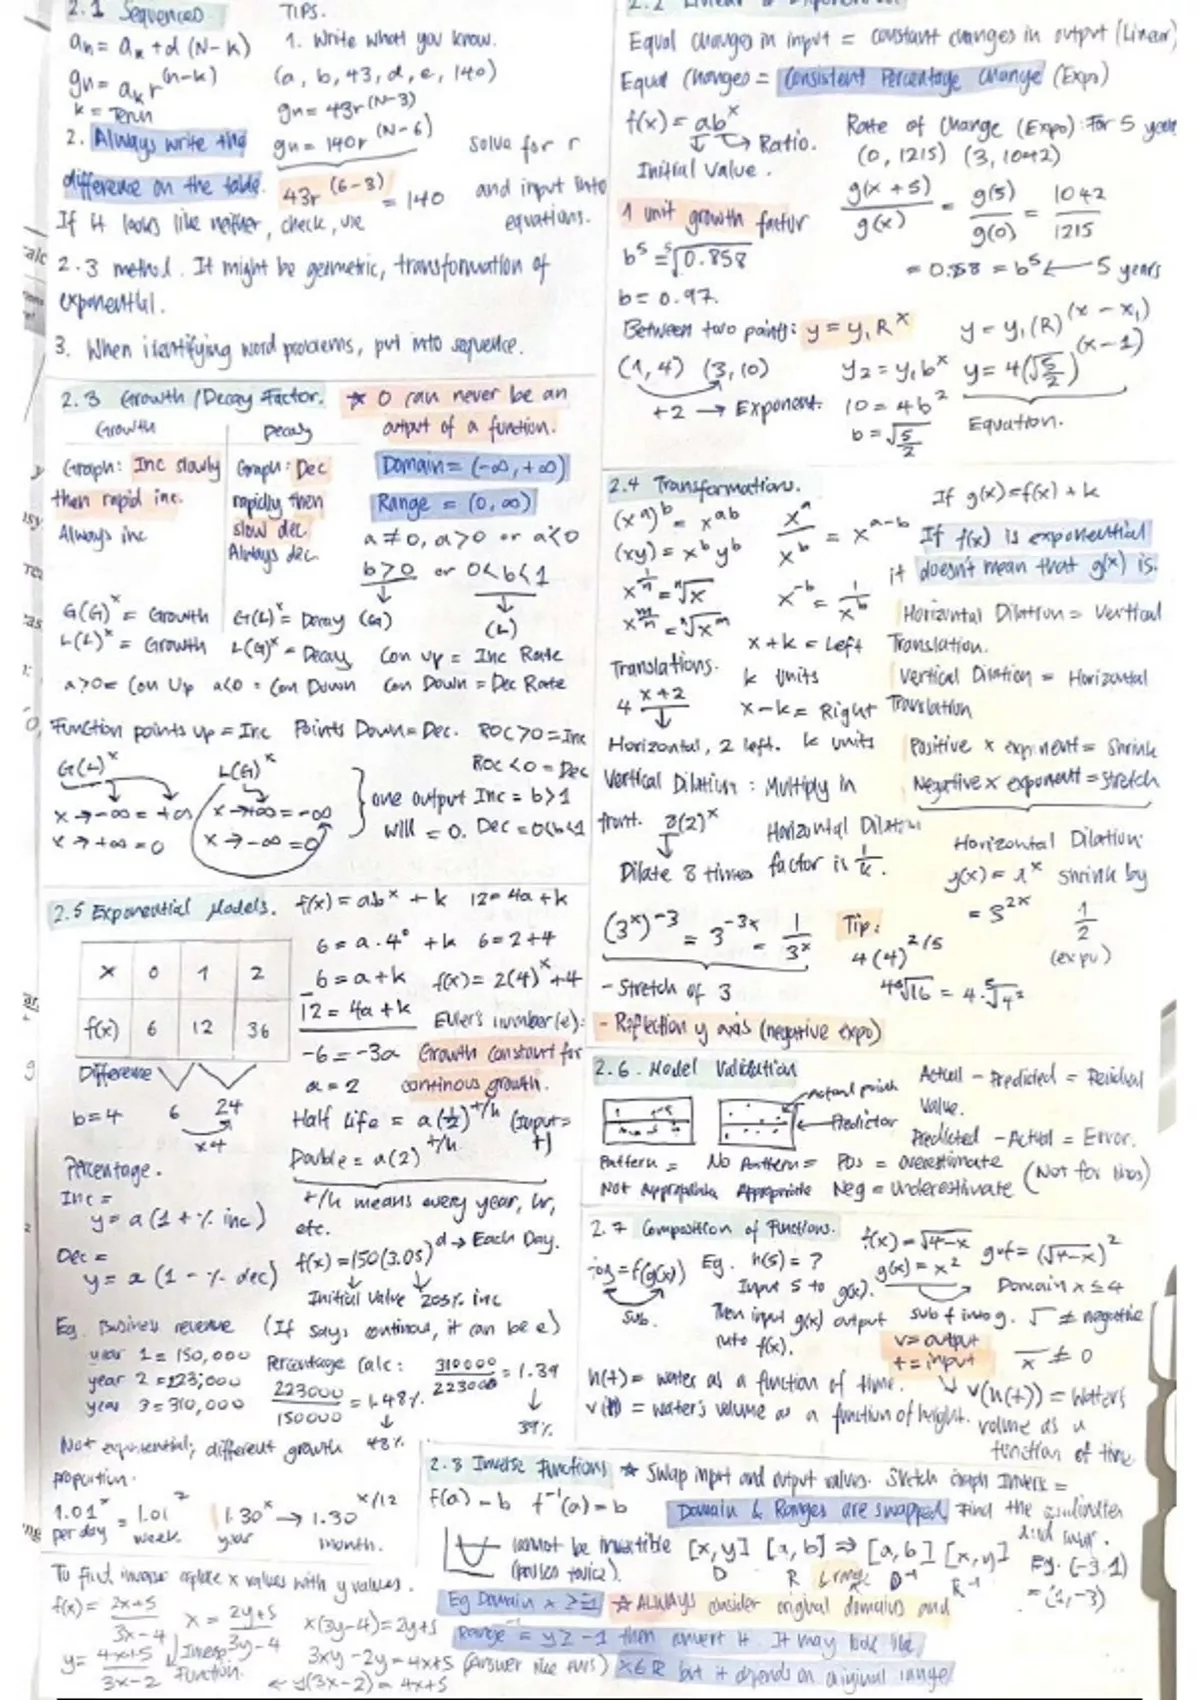 2.1 Sequences
TIPS.
an = ak + d (N-k)
1. Write what you know.
gn = ak r^(n-k)
(a, b, 43, d, e, 140)
k = Term
gn = 43r^(N-3)
2. Always write the
gn = 140r^(N-6)
solve for r
difference on the table.
43r^(6-3) = 140
and input into
If it looks like neither, check, use
equations.
2.3 method. It might be geometric, transformation of
exponential.
3. When identifying word problems, put into sequence.
Equal changes in input = constant changes in output (Linear)
Equal Changes = Consistent Percentage Change (Expo)
f(x) = ab^x
→ Ratio.
Initial Value.
Rate of Change (Expo): For 5 years
(0, 1215) (3, 1042)
g(x+5)/g(x) = g(5)/g(0) = 1042/1215
1 unit growth factor
b^5 = ⁵√0.858
= 0.858 = b^5 ← 5 years
b = 0.97.
Between two points: y = y1 R^x
y = y1 (R)^(x - x1)
(1, 4) (3, 10)
y2 = y1 b^x
y = 4(√5/2)^(x-1)
+2 → Exponent.
10 = 4b^2
Equation.
b = √5/2
2.3 Growth / Decay Factor.
★ 0 can never be an
output of a function.
Growth
Decay
Graph: Inc slowly
then rapid inc.
Always inc
Graph: Dec
rapidly then
slow dec.
Always dec.
Domain = (-∞, +∞)
Range = (0, ∞)
a ≠ 0, a > 0 or a < 0
b > 0 or 0 < b < 1
(G)
(L)
G(G)^x = Growth
G(L)^x = Decay
L(L)^x = Growth
L(G)^x = Decay
Con up = Inc Rate
a > 0 = Con Up
a < 0 = Con Down
Con Down = Dec Rate
Function points up = Inc
Points Down = Dec.
ROC > 0 = Inc
ROC < 0 = Dec
G(L)^x
L(G)^x
x → -∞ = +∞
x → +∞ = -∞
x → +∞ = 0
x → -∞ = 0
one output Inc = b > 1
will = 0. Dec = 0<b<1
2.4 Transformations.
If g(x) = f(x) + k
(x^a)^b = x^ab
x^a/x^b = x^a-b
If f(x) is exponential
(xy) = x^b y^b
it doesn't mean that g(x) is.
x^1/n = ⁿ√x
x^-b = 1/x^b
x^m/n = ⁿ√x^m
Horizontal Dilation = Vertical
Translation.
x + k = Left
k units
Translations.
Vertical Dilation = Horizontal
Translation
4^x+2
x - k = Right
k units
Horizontal, 2 left.
Positive x exponent = Shrink
Negative x exponent = Stretch
Vertical Dilation: Multiply in
front. 8(2)^x
Dilate 8 times
Horizontal Dilation
factor is 1/k.
Horizontal Dilation:
shrink by
= 3^2x
1/2
(expo)
(3^x)^-3 = 3^-3x = 1/3^x
Tip:
4(4)^2/5
- Stretch of 3
- Reflection y axis (negative expo)
2.5 Exponential Models.
f(x) = ab^x + k
12 = 4a + k
x 0 1 2
f(x) 6 12 36
6 = a · 4^0 + k
6 = 2 + 4
6 = a + k
f(x) = 2(4)^x + 4
12 = 4a + k
-6 = -3a
a = 2
Euler's number (e):
Growth constant for
continous growth.
Difference
6 24
×4
b = 4
Half life = a(1/2)^t/h (Input = t)
Double = a(2)^t/h
t/h means every year, hr,
etc.
Percentage.
Inc =
y = a(1 + % inc)
Dec =
y = a(1 - % dec)
f(x) = 150(3.05)^d → Each Day.
Initial Value 205% inc
Eg. Business revenue
(If says continous, it can be e)
year 1 = 150,000
year 2 = 223,000
year 3 = 310,000
Percentage Calc:
223000/150000 = 1.48%
48%
310000/223000 = 1.39
39%
Not exponential, different growth
proportion.
1.01^x = 1.01^7
per day week
1.30^x → 1.30^x/12
year month.
2.6. Model Validation
Actual point
Predictor
Pattern =
Not Appropriate
No Pattern =
Appropriate
Actual - Predicted = Residual
Value.
Predicted - Actual = Error.
Pos = overestimate
Neg = Underestimate
(Not for this)
2.7 Composition of Functions.
= f(g(x))
Sub.
Eg. h(5) = ?
Input 5 to g(x).
Then input g(x) output
into f(x).
f(x) = √4-x
g(x) = x^2
g∘f = (√4-x)^2
Domain x ≤ 4
sub f into g.
√ ≠ negative
v = output
t = input
/x ≠ 0
h(t) = water as a function of time.
v(h) = water's volume as a function of height.
v(h(t)) = Water's
volume as a
function of time
2.8 Inverse Functions
★ Swap input and output values.
f(a) = b f^-1(a) = b
Domain & Ranges are swapped,
cannot be invertible
(passes twice).
[x, y] [a, b] ⇒ [a, b] [x, y]
D R D^-1 R^-1
Eg. (-3,1)
= (1,-3)
Eg Domain x ≥ -1
★ ALWAYS consider original domains and
Range = y ≥ -1 then convert it. It may look like
(Answer like this) x∈R but it depends on original range
To find inverse replace x values with y values.
f(x) = 2x+5/3x-4
x = 2y+5/3y-4
x(3y-4) = 2y+5
3xy - 2y = 4x+5
y(3x-2) = 4x+5
y = 4x+5/3x-2
Inverse
Function.